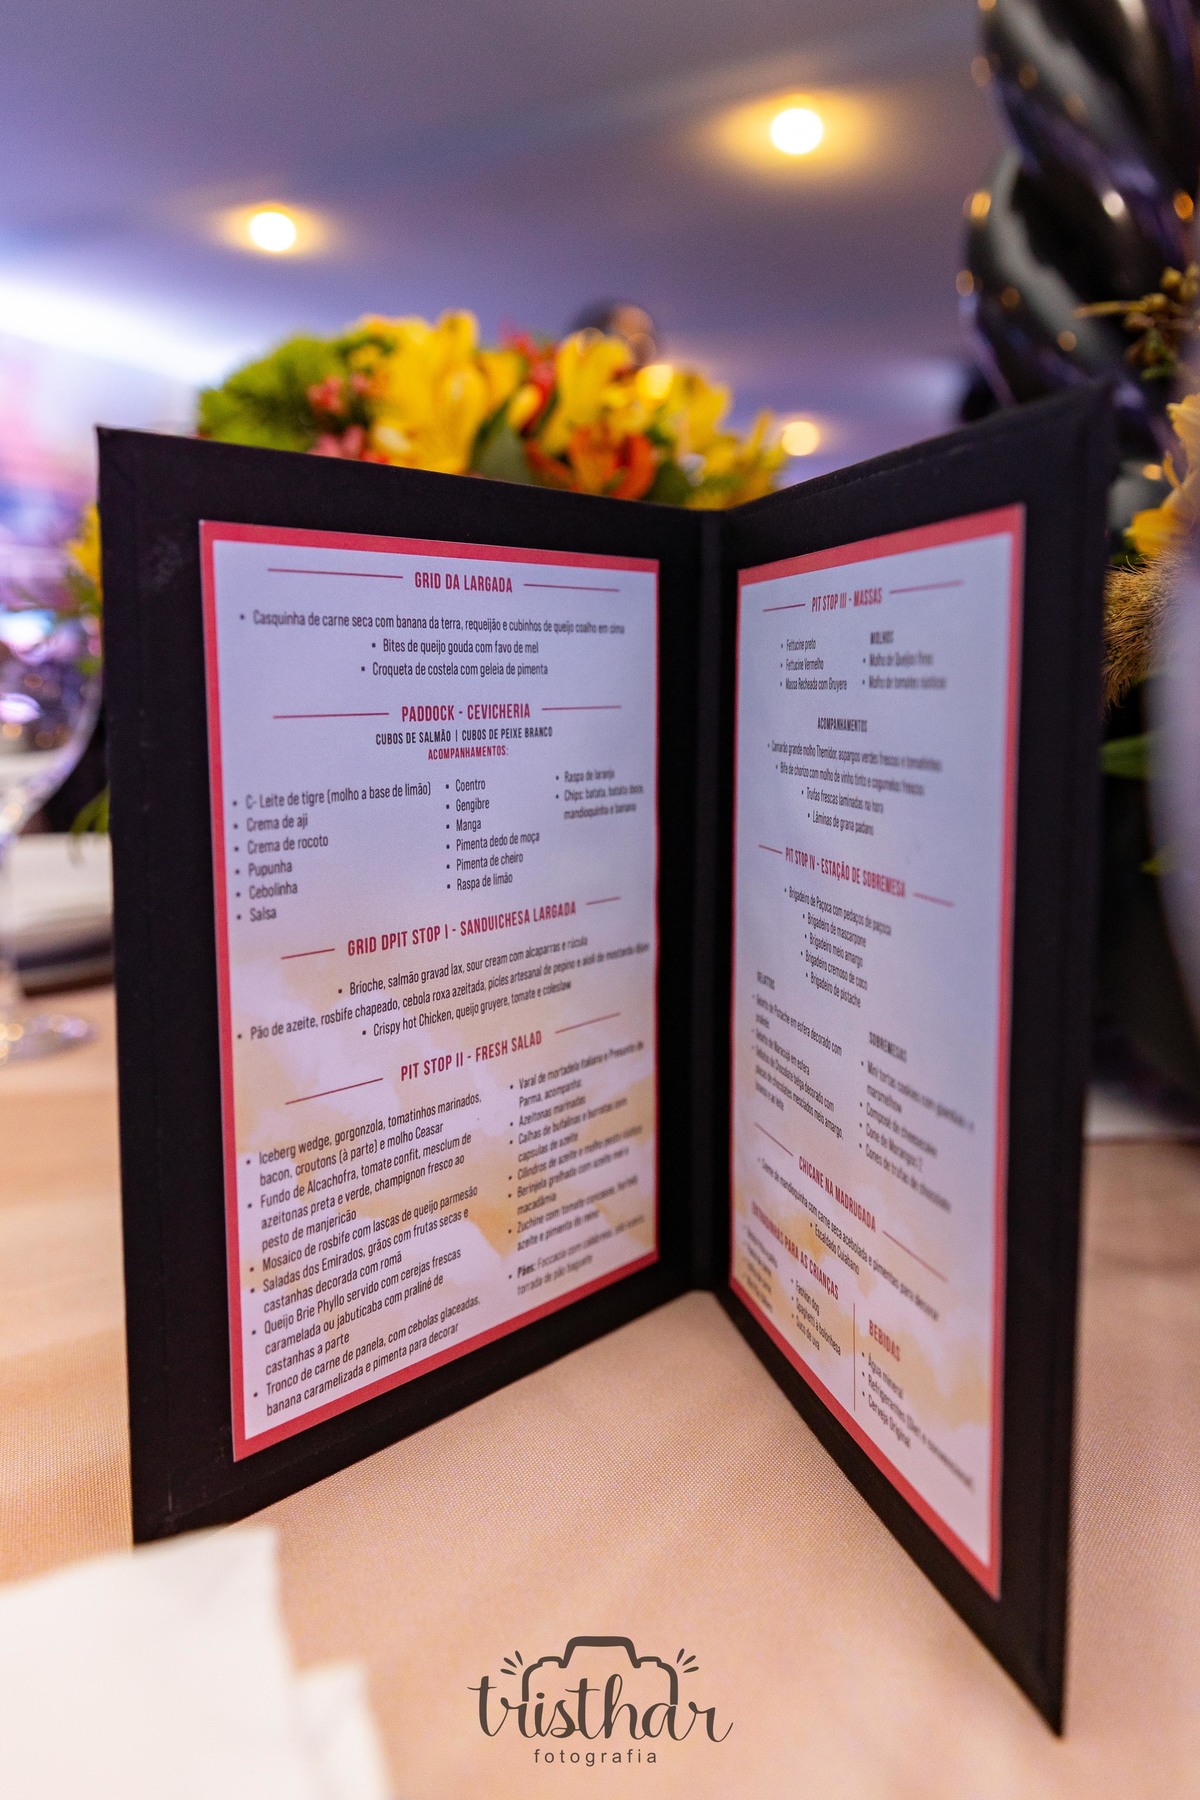 GRID DA LARGADA
• Casquinha de carne seca com banana da terra, requeijão e cubinhos de queijo coalho em cima
• Bites de queijo gouda com favo de mel
• Croqueta de costela com geleia de pimenta
PADDOCK - CEVICHERIA
CUBOS DE SALMÃO | CUBOS DE PEIXE BRANCO
ACOMPANHAMENTOS:
• C- Leite de tigre (molho a base de limão)
• Crema de aji
• Crema de rocoto
• Pupunha
• Cebolinha
• Salsa
• Coentro
• Gengibre
• Manga
• Pimenta dedo de moça
• Pimenta de cheiro
• Raspa de limão
• Raspa de laranja
• Chips: batata, batata doce,
mandioquinha e banana
GRID DPIT STOP I - SANDUICHESA LARGADA
• Brioche, salmão gravad lax, sour cream com alcaparras e rúcula
• Pão de azeite, rosbife chapeado, cebola roxa azeitada, picles artesanal de pepino e aioli de mostarda dijon
• Crispy hot Chicken, queijo gruyere, tomate e coleslaw
PIT STOP II - FRESH SALAD
• Iceberg wedge, gorgonzola, tomatinhos marinados,
bacon, croutons (à parte) e molho Ceasar
• Fundo de Alcachofra, tomate confit, mesclum de
azeitonas preta e verde, champignon fresco ao
pesto de manjericão
• Mosaico de rosbife com lascas de queijo parmesão
• Saladas dos Emirados, grãos com frutas secas e
castanhas decorada com romã
• Queijo Brie Phyllo servido com cerejas frescas
caramelada ou jabuticaba com praliné de
castanhas a parte
• Tronco de carne de panela, com cebolas glaceadas,
banana caramelizada e pimenta para decorar
• Varal de mortadela italiana e Presunto de
Parma, acompanha:
• Azeitonas marinadas
• Calhas de bufalinas e burratas com
capsulas de azeite
• Cilindros de azeite e molho pesto
• Berinjela grelhada com azeite mel e
macadâmia
• Zuchine com tomate concasse, hortelã,
azeite e pimenta do reino
• Pães: Foccacia com calabresa,
torrada de pão baguete
PIT STOP III - MASSAS
• Fettucine preto
• Fettucine Vermelho
• Massa Recheada com Gruyere
MOLHOS
• Molho de Queijos finos
• Molho de tomates rústicos
ACOMPANHAMENTOS
• Camarão grande molho Themidor, aspargos verdes frescos e tomatinhos
• Bife de chorizo com molho de vinho tinto e cogumelos frescos
• Trufas frescas laminadas na hora
• Lâminas de grana padano
PIT STOP IV - ESTAÇÃO DE SOBREMESA
• Brigadeiro de Paçoca com pedaços de paçoca
• Brigadeiro de mascarpone
• Brigadeiro meio amargo
• Brigadeiro cremoso de coco
• Brigadeiro de pistache
GELATOS
• Gelato de Pistache em esfera decorado com
• Gelato de Maracujá em esfera
• Gelatos de Chocolate belga decorado com
placas de chocolates mesclados meio amargo,
branco e ao leite
SOBREMESAS
• Mini tortas cookies com
marsmellow
• Composé de cheesecake
• Cone de Morangos
• Cones de trufas de chocolate
CHICANE NA MADRUGADA
• Creme de mandioquinha com carne seca acebolada e pimentões para decorar
• Escaldado cuiabano
PARA AS CRIANÇAS
• Fashion dog
• Spaghetti à bolonhesa
• Suco de uva
BEBIDAS
• Água mineral
• Refrigerantes
• Cerveja Original
tristhar
fotografia